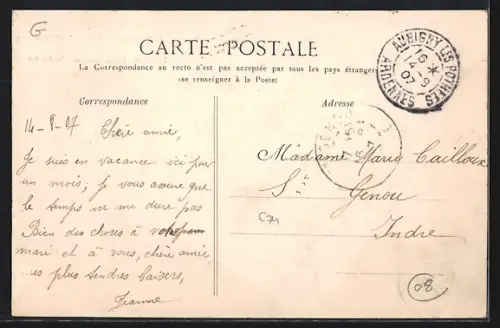 G
CARTE POSTALE
La Correspondance au recto n'est pas acceptée par tous les pays étrangers
(se renseigner à la Poste)
Correspondance
Adresse
AUBIGNY LES POTHEES
16 *
14 -9
07
ARDENNES
14-9-07 Chère amie,
Je suis en vacance ici pour
un mois; je vous assure que
le temps ne me dure pas
Bien des choses à votre
mari et à vous, chère amie,
mes plus tendres baisers,
Jeanne
Madame Marie Cailloux
St Genou
Indre
C71
08